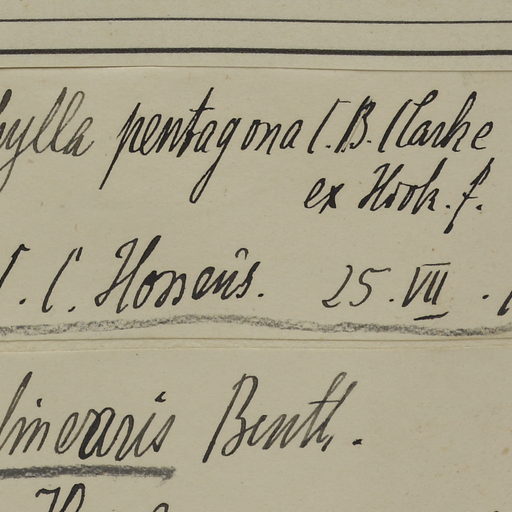 ylla pentagona C. B. Clarke
ex Hook. f.
C. Hosseus. 25. VII.
linearis Benth.